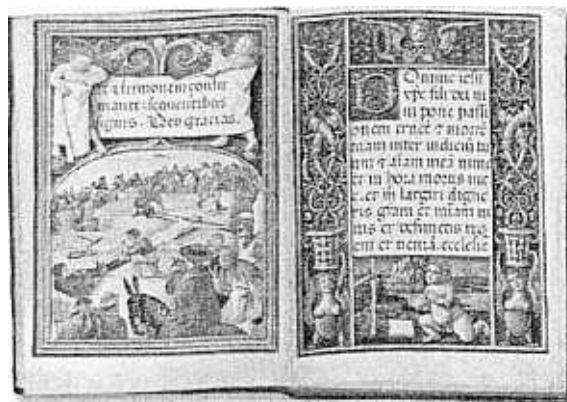 et sermonem confir
mante sequentibus
signis. Deo gracias.
Domine iesu
xpe fili dei vi
vi pone passi
onem crucē et mortē
tuam inter iudiciū tu
um et aīam meā nunc
et in hora mortis me
e. et m largiri digne
ris gram et miam vi
vis et defunctis req
em et veniā. ecclesie